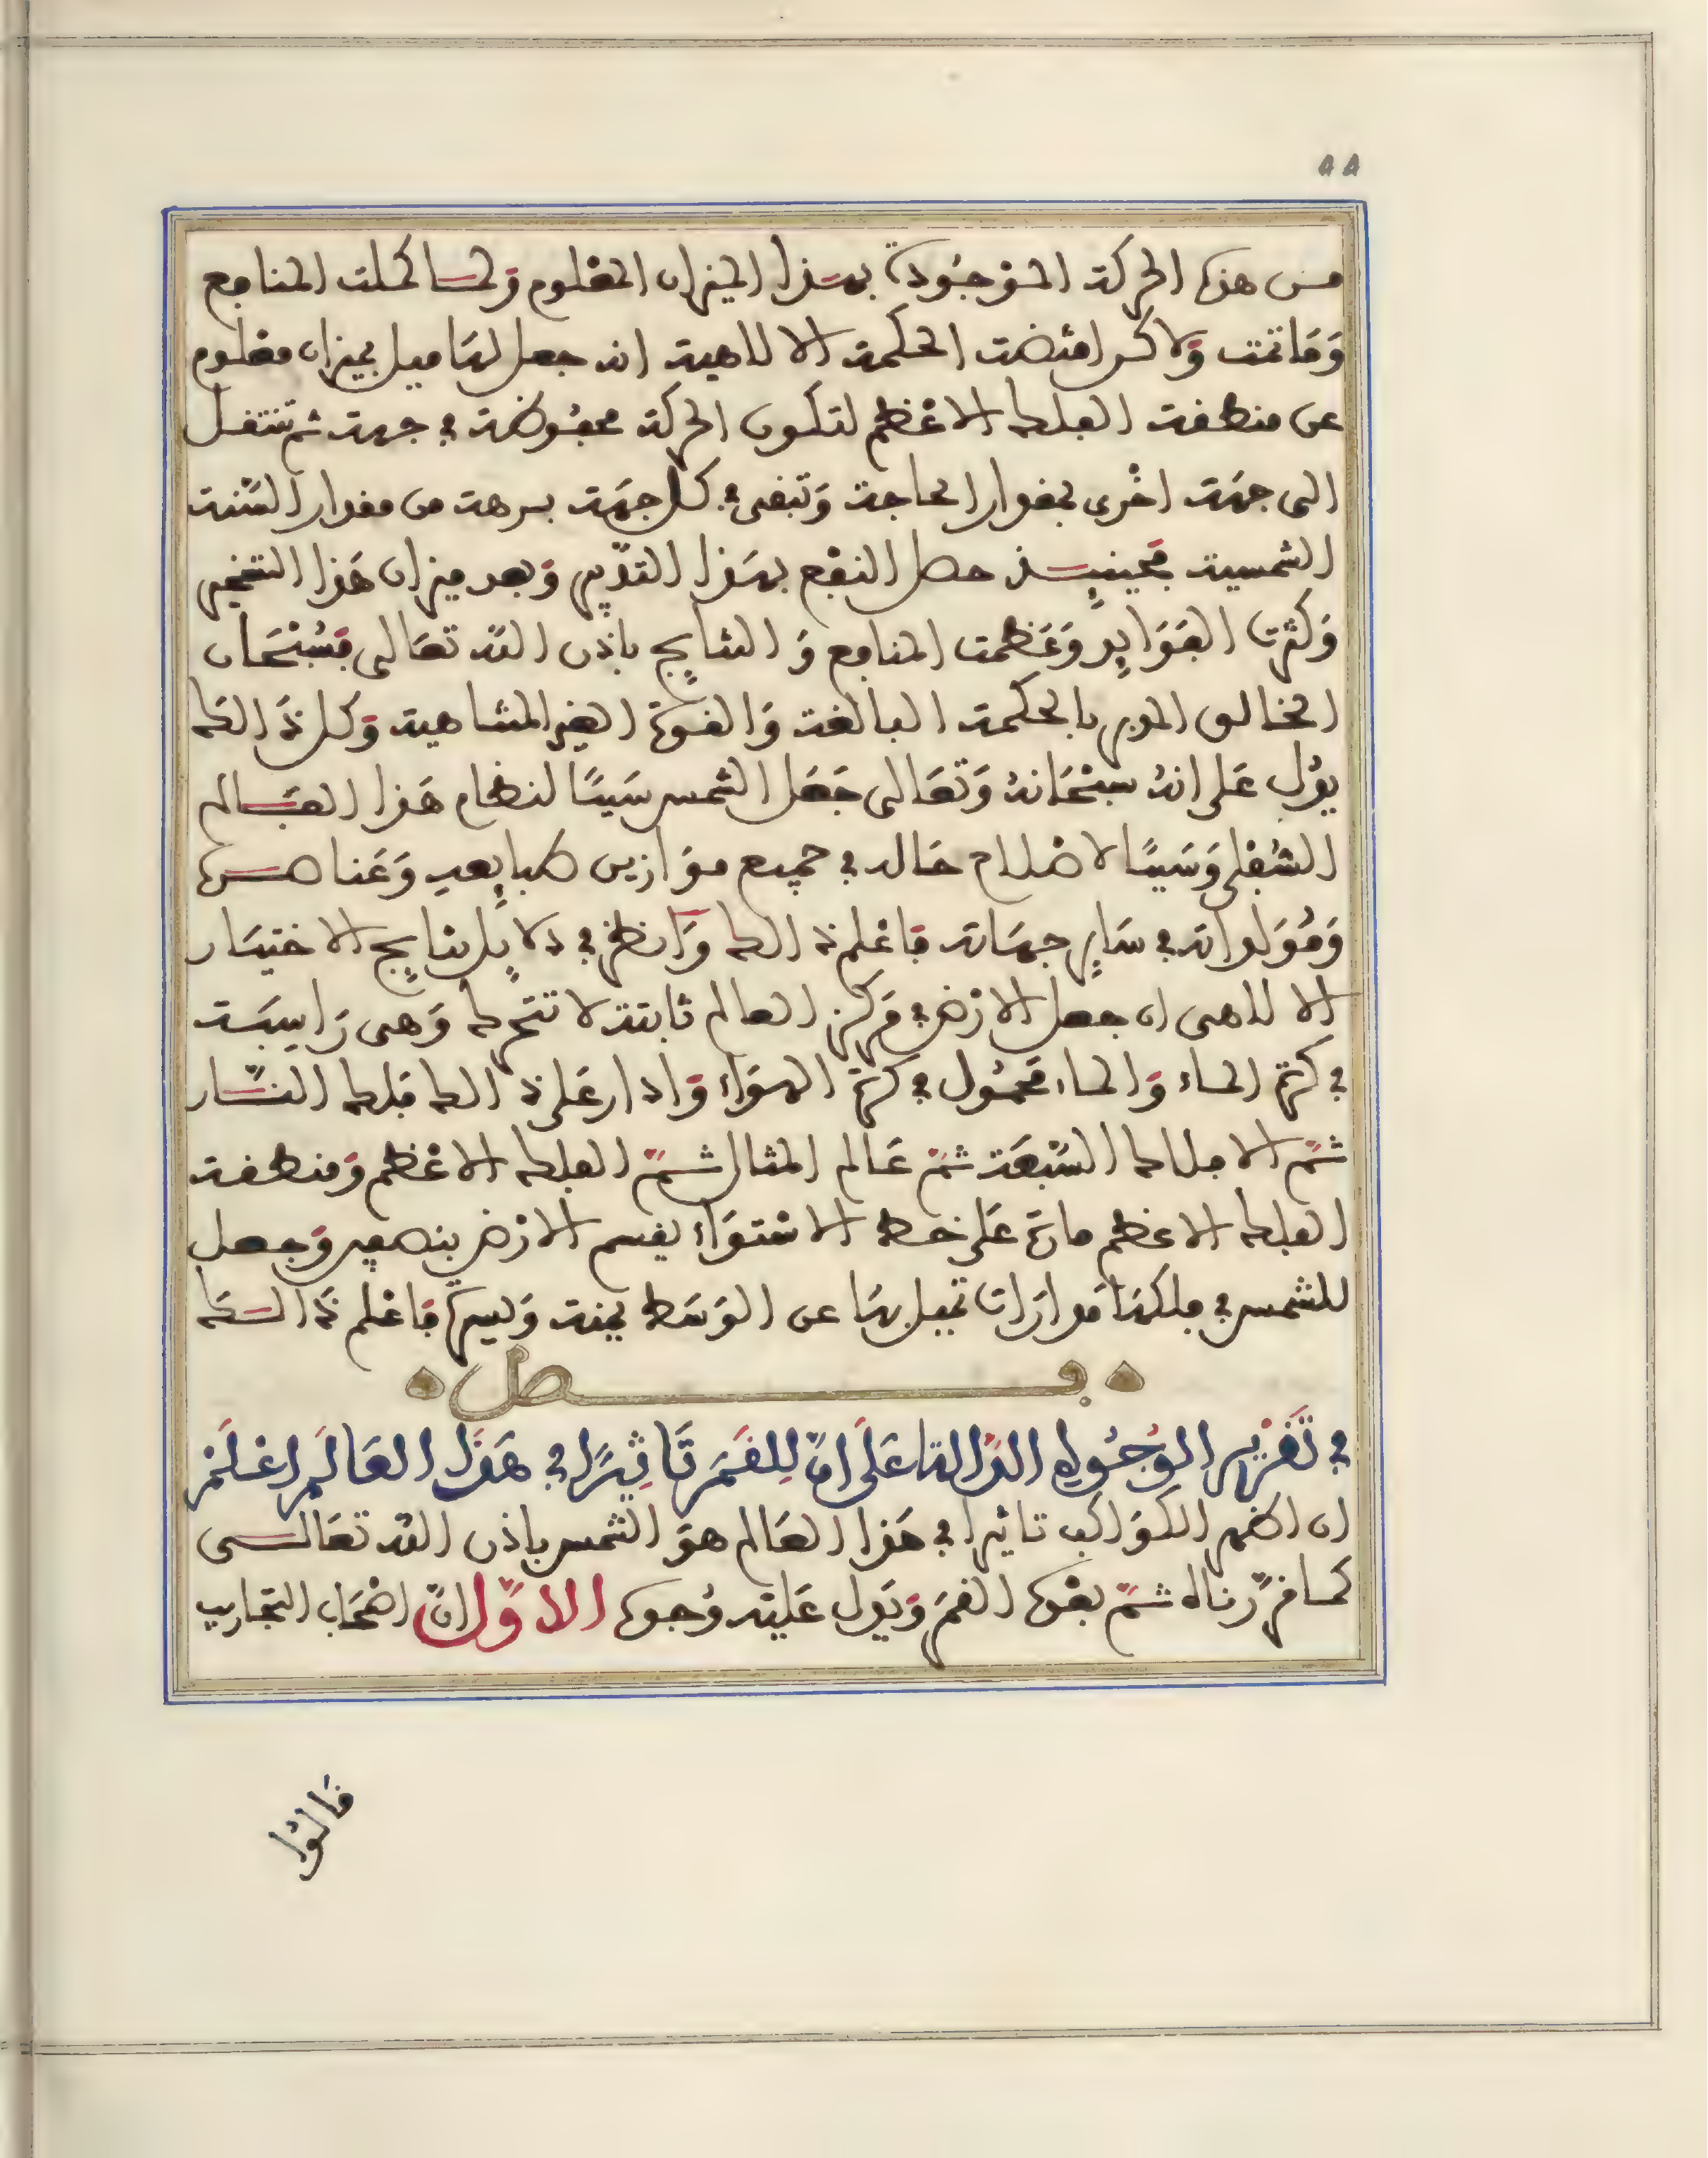 ٥٥
من هذه الحركة الموجودة بهذا الميزان المعلوم ولما كملت المنافع
وما تمت ولاكن اقتضت الحكمة الالاهية ان جعل لها ميل بميزان معلوم
عن منطقة الفلك الاعظم لتكون الحركة محفوظة في جهة ثم تنتقل
الى جهة اخرى بمقدار الحاجة وتبقى في كل جهة برهة من مقدار السنة
الشمسية فحينيذ حصل النفع بهذا التدبير وبعد ميزان هذا التسخير
وكثرت الفوايد وعظمت المنافع والنتايج باذن الله تعالى فسبحان
الخالق المدبر بالحكمة البالغة والقوة الغير المتناهية وكل ذالك
يدل على انه سبحانه وتعالى جعل الشمس سببا لنظام هذا العالم
السفلي وسببا لاصلاح حاله في جميع موازين طبايعه وعناصره
ومولداته في ساير جهاته فاعلم ذالك وانظر في دلايل نتايج الاختيار
الالاهي ان جعل الارض في مركز العالم ثابتة لا تتحرك وهي راسبة
في كرة الماء والماء محمول في كرة الهواء وادار على ذالك فلك النار
ثم الافلاك السبعة ثم عالم المثال ثم الفلك الاعظم ومنطقة
الفلك الاعظم مارة على خط الاستواء يقسم الارض بنصفين وجعل
للشمس في فلكها مدارات تميل بها عن الوسط يمنة ويسرة فاعلم ذالك
فصل
في تقرير الوجوه الدالة على ان للقمر تاثيرا في هذا العالم اعلم
ان اظهر الكواكب تاثيرا في هذا العالم هو الشمس باذن الله تعالى
كما قررناه ثم بعده القمر ويدل عليه وجوه الاول ان اصحاب التجاريب
قالوا